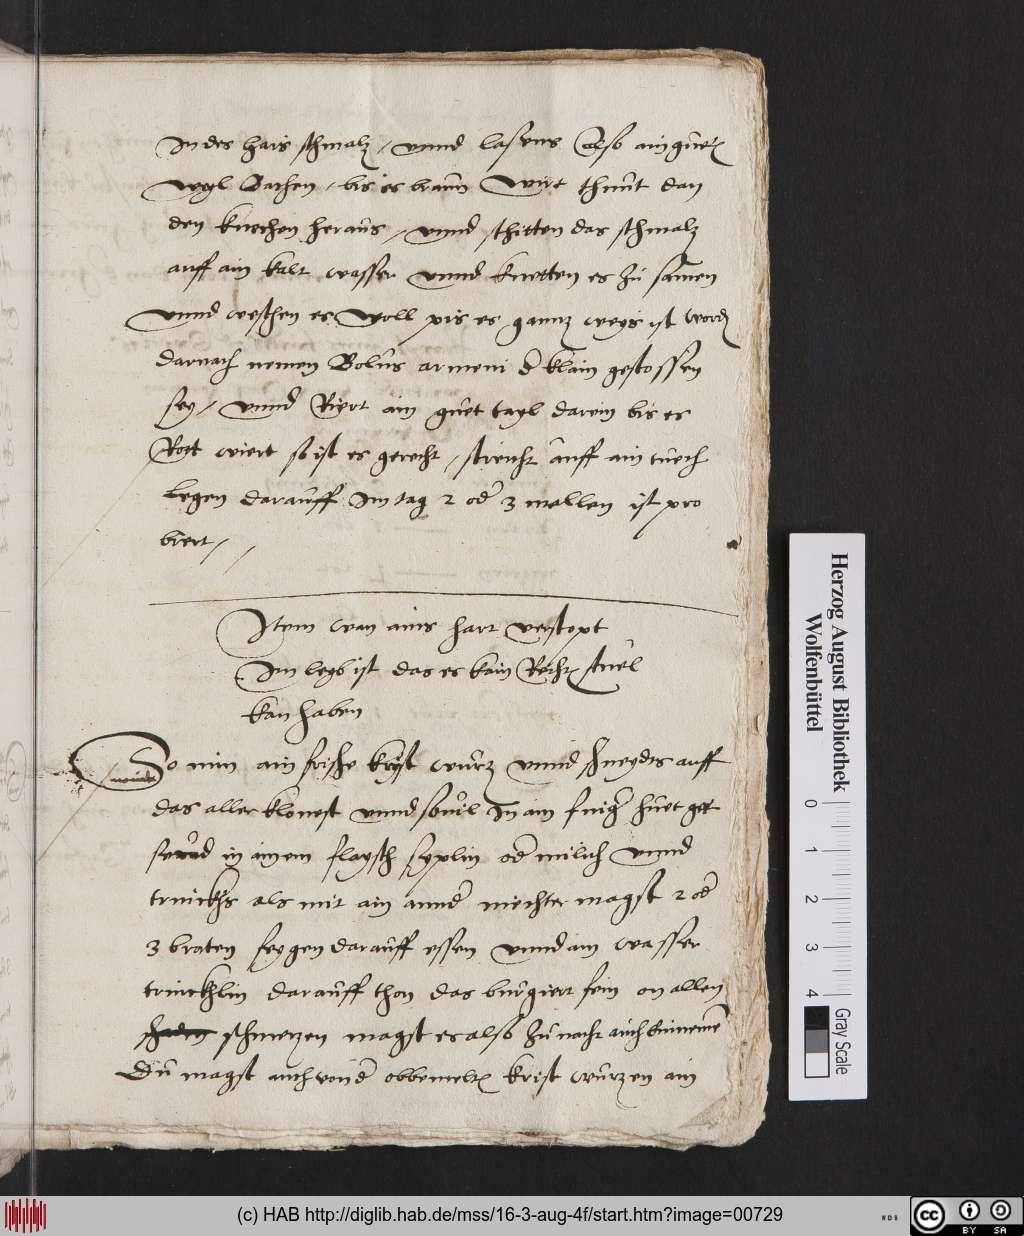 In des hais schmalz / unnd lasens Also ain guete
weyl Bachen / bis es braun wirt thuut dan
den kuechen heraus / unnd schitten das schmalz
auff ain kalt wasser unnd knetten es zu samen
unnd weschen es woll pis es gannz weys ist word
darnach nemen Bolus armeni d klain gestossen
sey / unnd Riert ain guet tayl darein bis es
Rott wiert so ist es gerecht / streicht auff ain tuech
Legen darauff Im tag 2 od 3 mallen ist pro
biert //
Item wan ains hart verstopt
Im leyb ist das es kain Recht stuel
kan haben
So nim ain frische krist wurz unnd schneydts auff
das aller klenest unnd sovil In ain huet get
seud in ainem flaysch syplin od milich unnd
trinckhs als mit ain annd nechter magst 2 od
3 braten feygen darauff essen unnd ain wasser
trinckhlin darauff thon das burgiert fein on allen
schmerzen magst es also zu nacht auch einneme
Du magst auch von d obbemelte krist wurzen ain
Herzog August Bibliothek
Wolfenbüttel
0 1 2 3 4
Gray Scale
(c) HAB http://diglib.hab.de/mss/16-3-aug-4f/start.htm?image=00729
WDB
cc BY SA